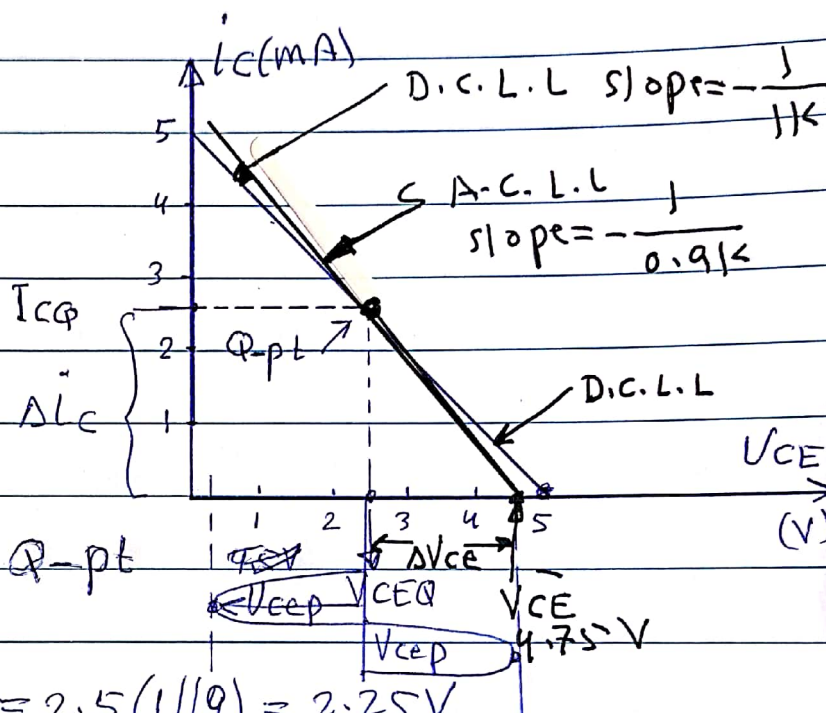 ic(mA)
D.C.L.L slope=-1/1K
5
A.C.L.L
slope=-1/0.9K
4
3
ICQ
Q-pt
2
D.C.L.L
Δic
1
VCE
1 2 3 4 5
(V)
Q-pt
ΔVce
Vcep
VCEQ
VCE
4.75 V
Vcep
= 2.5(1//9) = 2.25V